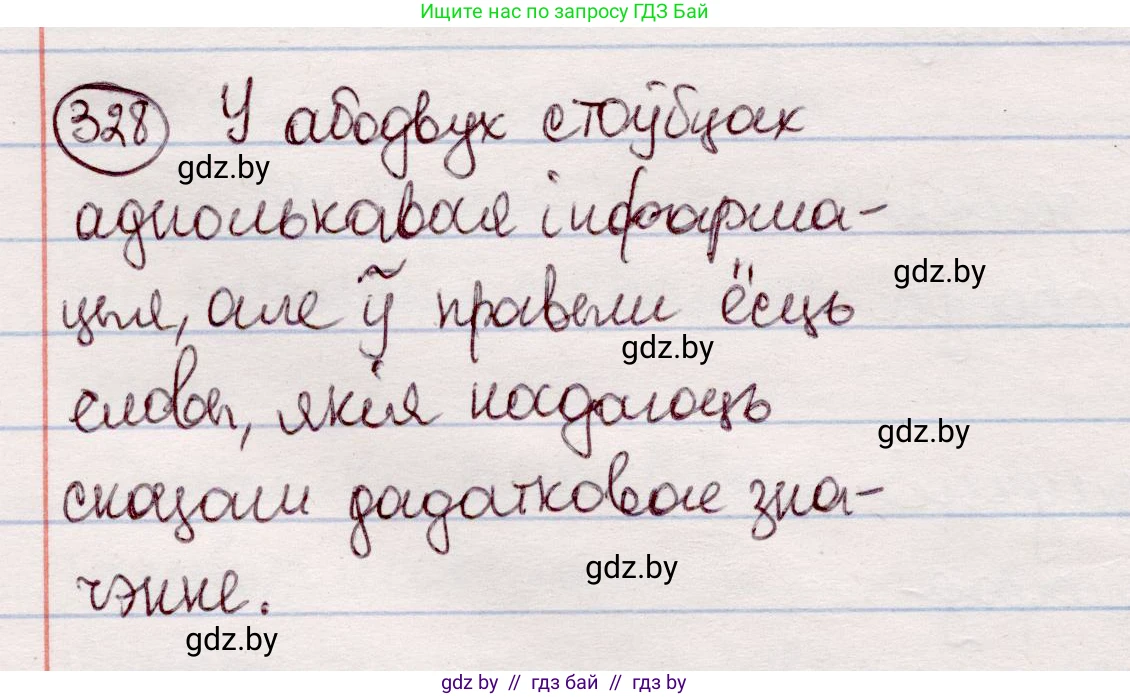 Ищите нас по запросу ГДЗ Бай
328 У абодвух стоўбцах
gdz.by
аднолькавая інфарма-
gdz.by
цыя, але ў правым ёсць
gdz.by
словы, якія надаюць
gdz.by
сказам дадатковае зна-
gdz.by
чэнне.
gdz.by
gdz by // гдз бай // гdz by